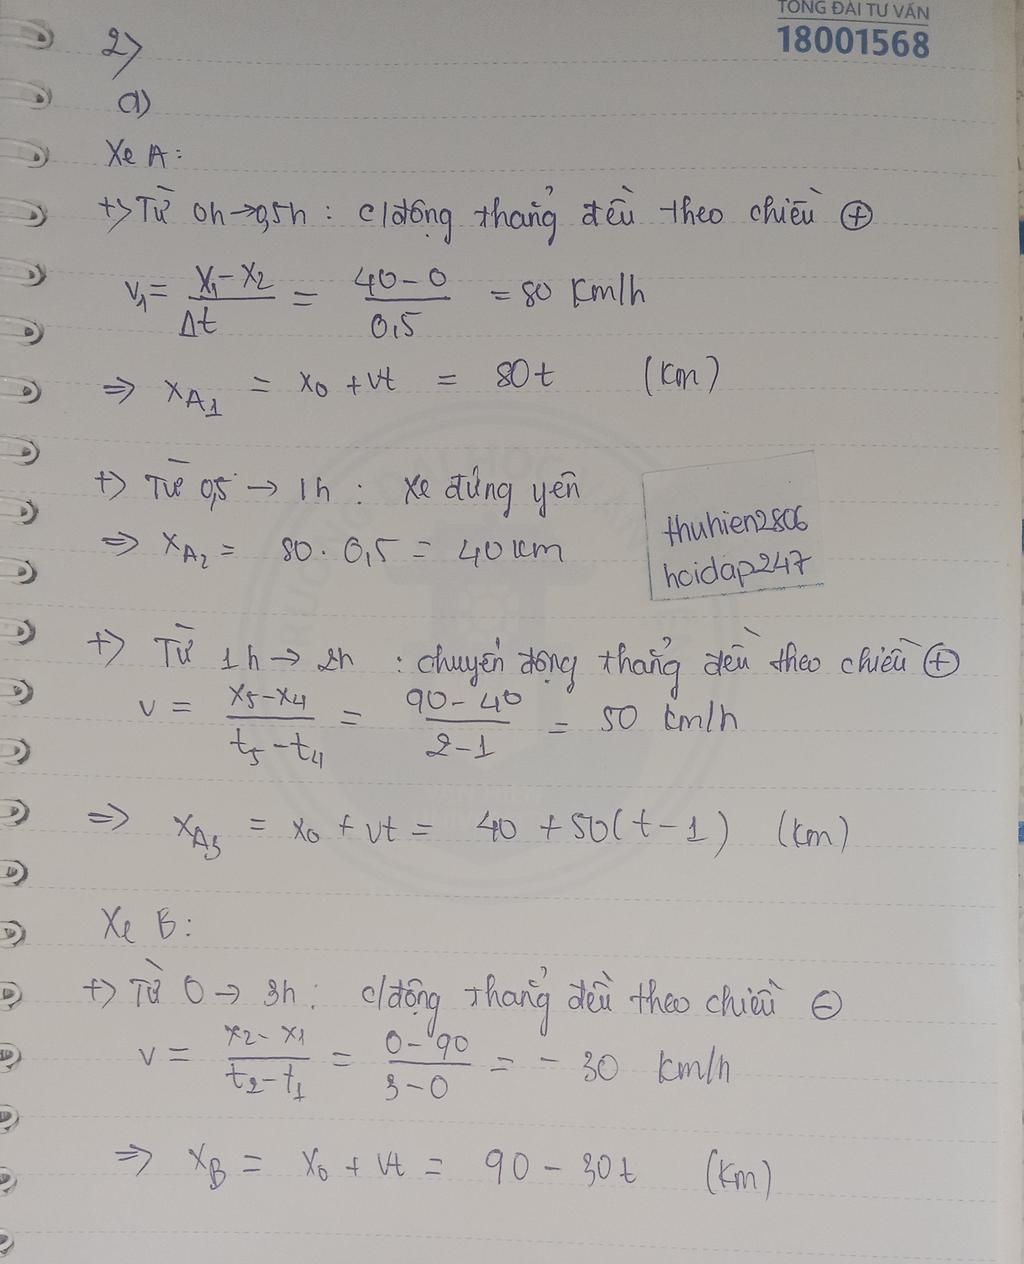 TỔNG ĐÀI TƯ VẤN
18001568
2)
a)
Xe A:
+> Từ 0h → 0,5h : c/động thẳng đều theo chiều ⊕
v₁ = (x₁ - x₂)/Δt = (40 - 0)/0,5 = 80 km/h
=> x_A₁ = x₀ + vt = 80t (km)
+> Từ 0,5 → 1h : xe đứng yên
=> x_A₂ = 80 . 0,5 = 40 km
thuhien2806
hoidap247
+> Từ 1h → 2h : chuyển động thẳng đều theo chiều ⊕
v = (x₅ - x₄)/(t₅ - t₄) = (90 - 40)/(2 - 1) = 50 km/h
=> x_A₃ = x₀ + vt = 40 + 50(t - 1) (km)
Xe B:
+> Từ 0 → 3h : c/động thẳng đều theo chiều ⊖
v = (x₂ - x₁)/(t₂ - t₁) = (0 - 90)/(3 - 0) = - 30 km/h
=> x_B = x₀ + vt = 90 - 30t (km)